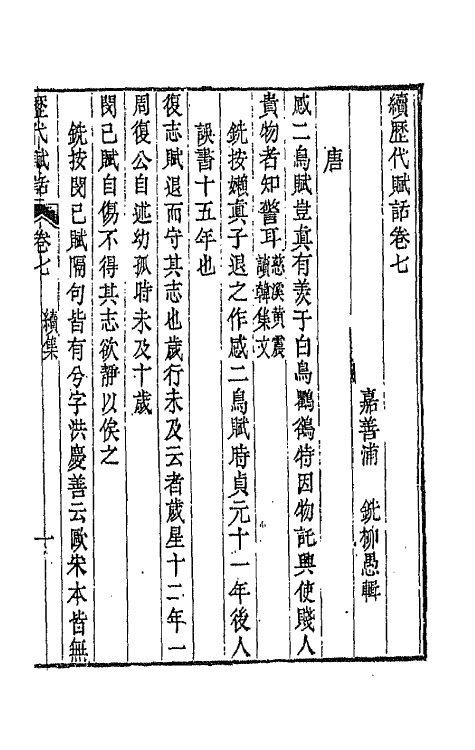 續歷代賦話卷七
嘉善浦　銑柳愚輯
唐
感二鳥賦豈真有羨于白鳥鸜鵒特因物託興使賤人
貴物者知警耳慈溪黄震讀韓集文
銑按嬾真子退之作感二鳥賦時貞元十一年後人
誤書十五年也
復志賦退而守其志也歲行未及云者歲星十二年一
周復公自述幼孤時未及十歲
閔己賦自傷不得其志欲静以俟之
銑按閔已賦隔句皆有兮字洪慶善云歐宋本皆無
歷代賦話　卷七　續集　一